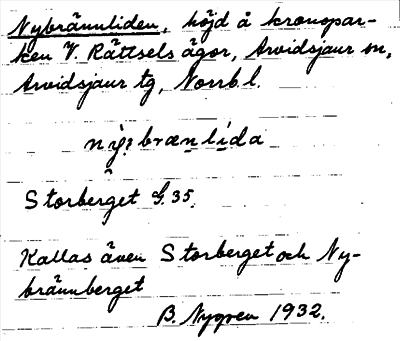 Nybrännliden, höjd å kronopar-
ken V. Rättsels ägor, Arvidsjaur sn,
Arvidsjaur tg, Norrb. l.
Storberget G. 35.
Kallas även Storberget och Ny-
brännberget
B. Nygren 1932.